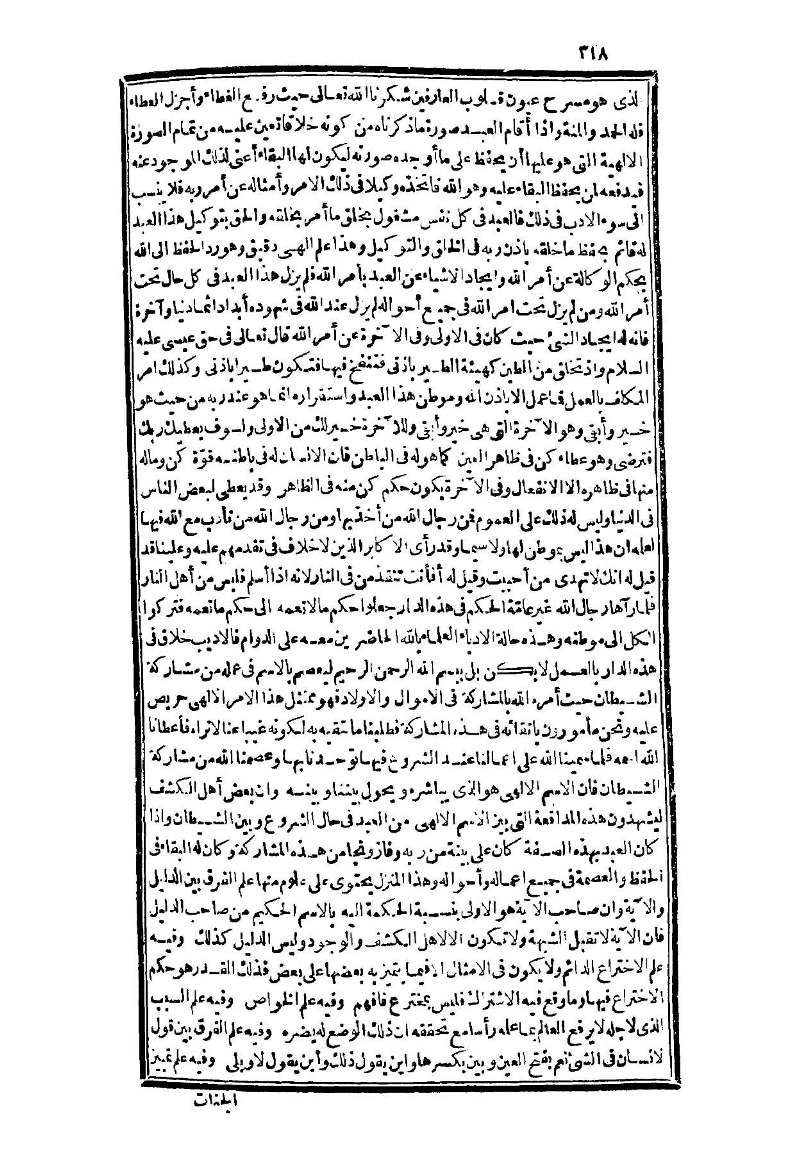 ٣١٨
لذى هو مسرح عيون قلوب العارفين شكرنا الله تعالى حيث رفع الغطاء وأجزل العطاء
فله الحمد والمنة واذا أقام العبد صورة ماذكرناه من كونه خلاقا تعين عليه من تمام الصورة
الالهية التى هو عليها أن يحفظ على ماأوجده صورته ليكون لها البقاء أعنى لذلك الموجود عنه
فيدفعه لمن يحفظ البقاء عليه وهو الله فاتخذه وكيلا فى ذلك الامر وأمثاله عن أمر ربه فلا ينسب
الى سوء الادب فى ذلك فالعبد فى كل نفس مشغول بخلق ما أمر بخلقه والحق بتوكيل هذا العبد
له قائم بحفظ ماخلقه باذن ربه فى الخلق والتوكيل وهذا علم الهى دقيق وهو رد الحفظ الى الله
بحكم الوكالة عن أمر الله وايجاد الاشياء عن العبد بأمر الله فلم يزل هذا العبد فى كل حال تحت
أمر الله ومن لم يزل تحت امر الله فى جميع أحواله لم يزل عند الله فى شهوده أبدا دائما دنيا وآخرة
فانه له ايجاد الشئ حيث كان فى الاولى وفى الآخرة عن أمر الله قال تعالى فى حق عيسى عليه
السلام واذ تخلق من الطين كهيئة الطير باذنى فتنفخ فيها فتكون طيرا باذنى وكذلك امر
المكلف بالعمل فما عمل الا باذن الله وموطن هذا العبد واستقراره انما هو عند ربه من حيث هو
خير وأبقى وهو الآخرة التى هى خير وأبقى وللآخرة خير لك من الاولى ولسوف يعطيك ربك
فترضى وهو عطاء كن فى ظاهر العين كما هو له فى الباطن فان الانسان له فى باطنه قوة كن وماله
منها فى ظاهره الا الانفعال وفى الآخرة يكون حكم كن منه فى الظاهر وقد يعطى لبعض الناس
فى الدنيا وليس له ذلك على العموم فمن رجال الله من أخذ بها ومن رجال الله من تأدب مع الله فيها
لعلمه ان هذا ليس بموطن لها ولاسيما وقد رأى الاكابر الذين لاخلاف فى تقدمهم عليه وعلينا قد
قيل له انك لا تهدى من أحببت وقيل له أفأنت تنقذ من فى النار لانه اذا أسلم فليس من أهل النار
فلما رآها رجال الله غير عامة الحكم فى هذه الدار جعلوا حكم مالا تعمه الى حكم ما تعمه فتركوا
الكل الى موطنه وهذه حالة الادباء العلماء بالله الحاضرين معه على الدوام فالاديب خلاق فى
هذه الدار بالعمل لابكن بل ببسم الله الرحمن الرحيم ليعصم بالاسم فى عمله من مشاركة
الشيطان حيث أمره الله بالمشاركة فى الاموال والاولاد فهو ممتثل هذا الامر الالهى حريص
عليه ونحن مأمورون باتقائه فى هذه المشاركة فطلبنا ما نتقيه به لكونه غيبا عنا لانراه فأعطانا
الله اسمه فلما سمينا الله على اعمالنا عند الشروع فيها توحدنا بها وعصمنا الله من مشاركة
الشيطان فان الاسم الالهى هو الذى يباشره ويحول بيننا وبينه وان بعض أهل الكشف
ليشهدون هذه المدافعة التى بين الاسم الالهى من العبد فى حال الشروع وبين الشيطان واذا
كان العبد بهذه الصفة كان على بينة من ربه وفاز ونجا من هذه المشاركة وكان له البقاء فى
الحفظ والعصمة فى جميع اعماله وأحواله وهذا المنزل يحتوى على علوم منها علم الفرق بين الدليل
والآية وان صاحب الآية هو الاولى بنسبة الحكمة اليه بالاسم الحكيم من صاحب الدليل
فان الآية لا تقبل الشبهة ولا تكون الا لاهل الكشف والوجود وليس الدليل كذلك وفيه
علم الاختراع الدائم ولا يكون فى الامثال الا فيما يتميز به بعضها على بعض فذلك القدر هو حكم
الاختراع فيها وما وقع فيه الاشتراك فليس بمخترع فافهم وفيه علم الخواص وفيه علم السبب
الذى لاجله لا يرفع العالم بما علمه رأسا مع تحققه ان ذلك الوضع له يضره وفيه علم الفرق بين قول
لانسان فى الشئ نعم بفتح العين وبين بكسرها واين يقول ذلك وأين يقول لا وبلى وفيه علم تمييز
الجنات